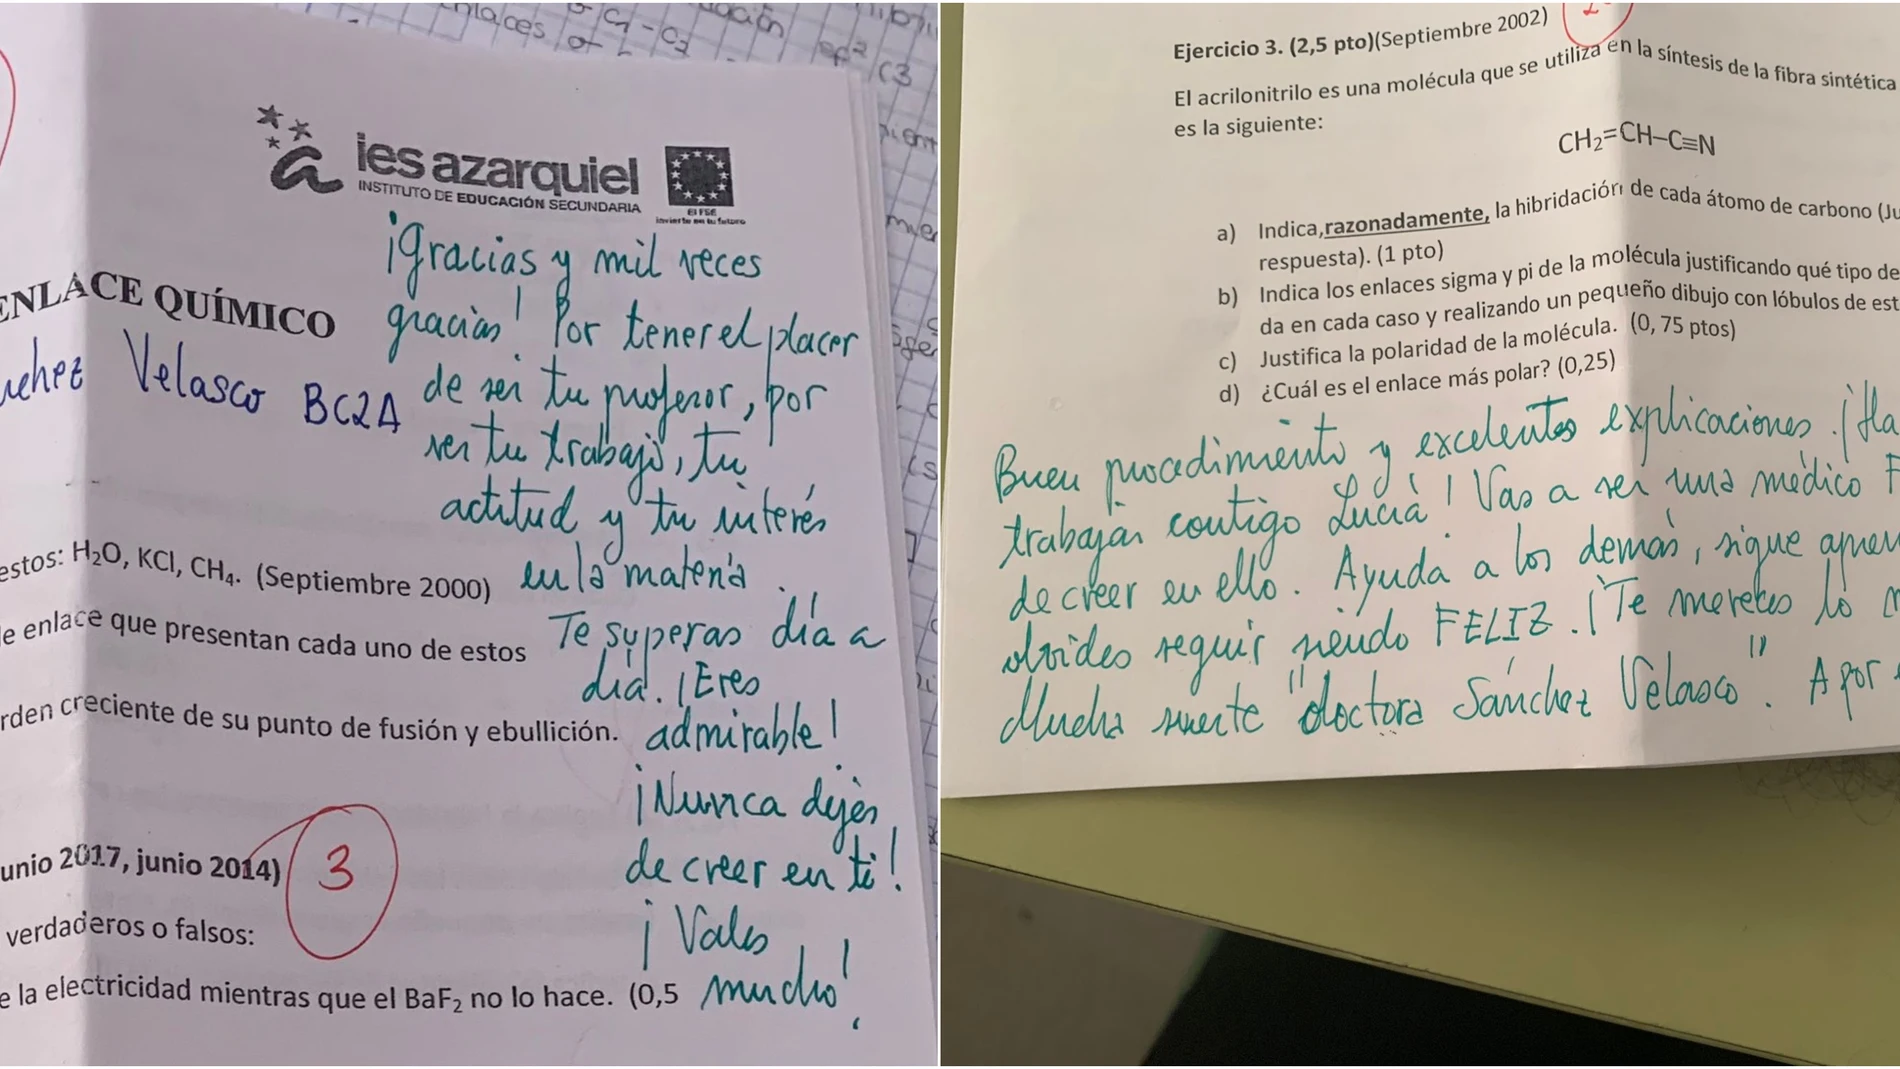 ies azarquiel
INSTITUTO DE EDUCACIÓN SECUNDARIA
El FSE
invierte en tu futuro
ENLACE QUÍMICO
Velasco BC2A
¡Gracias y mil veces
gracias! Por tener el placer
de ser tu profesor, por
ser tu trabajo, tu
actitud y tu interés
en la materia.
Te superas día a
día. ¡Eres
admirable!
¡Nunca dejes
de creer en ti!
¡Vales
mucho!
estos: H₂O, KCl, CH₄. (Septiembre 2000)
e enlace que presentan cada uno de estos
rden creciente de su punto de fusión y ebullición.
unio 2017, junio 2014) 3
verdaderos o falsos:
e la electricidad mientras que el BaF₂ no lo hace. (0,5
Ejercicio 3. (2,5 pto)(Septiembre 2002)
El acrilonitrilo es una molécula que se utiliza en la síntesis de la fibra sintética
es la siguiente:
CH₂=CH–C≡N
a) Indica,razonadamente, la hibridación de cada átomo de carbono (Ju
respuesta). (1 pto)
b) Indica los enlaces sigma y pi de la molécula justificando qué tipo de
da en cada caso y realizando un pequeño dibujo con lóbulos de est
c) Justifica la polaridad de la molécula. (0, 75 ptos)
d) ¿Cuál es el enlace más polar? (0,25)
Buen procedimiento y excelentes explicaciones. ¡Ha
trabajar contigo Lucía! Vas a ser una médico F
de creer en ello. Ayuda a los demás, sigue apren
olvides seguir siendo FELIZ. ¡Te mereces lo m
Mucha suerte "doctora Sánchez Velasco". A por